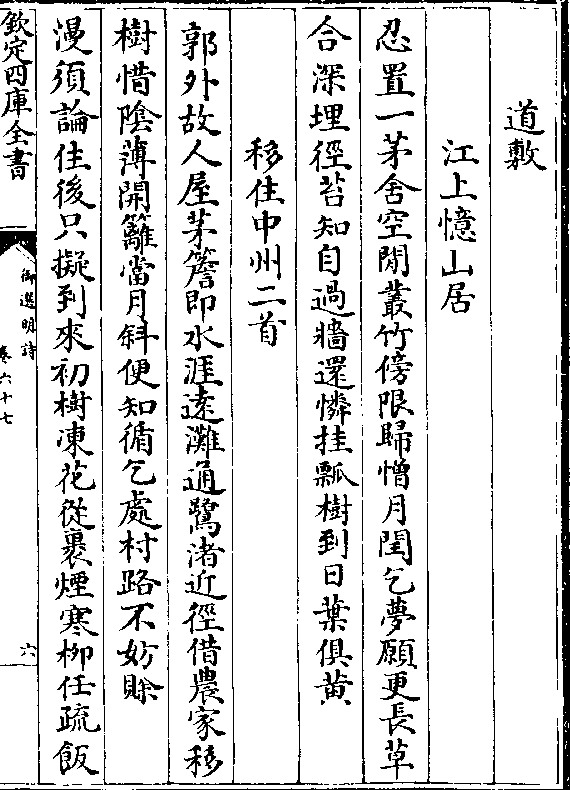 道敷
江上憶山居
忍置一茅舍空閒叢竹傍限歸憎月閏乞夢願更長草
合深埋徑苔知自過牆還憐挂瓢樹到日葉俱黄
移住中州二首
郭外故人屋茅簷即水涯遠灘通鷺渚近徑借農家移
樹惜陰薄開籬當月斜便知循乞處村路不妨賒
漫須論住後只擬到來初樹凍花從裹煙寒柳任疏飯
欽定四庫全書
御選明詩
卷六十七
六